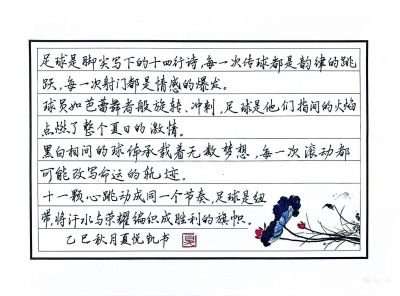 足球是脚尖写下的十四行诗，每一次传球都是韵律的跳
跃，每一次射门都是情感的爆发。
球员如芭蕾舞者般旋转、冲刺，足球是他们指间的火焰
点燃了整个夏日的激情。
黑白相间的球体承载着无数梦想，每一次滚动都
可能改写命运的轨迹。
十一颗心跳动成同一个节奏，足球是纽
带，将汗水与荣耀编织成胜利的旗帜。
乙巳秋月夏悦凯书